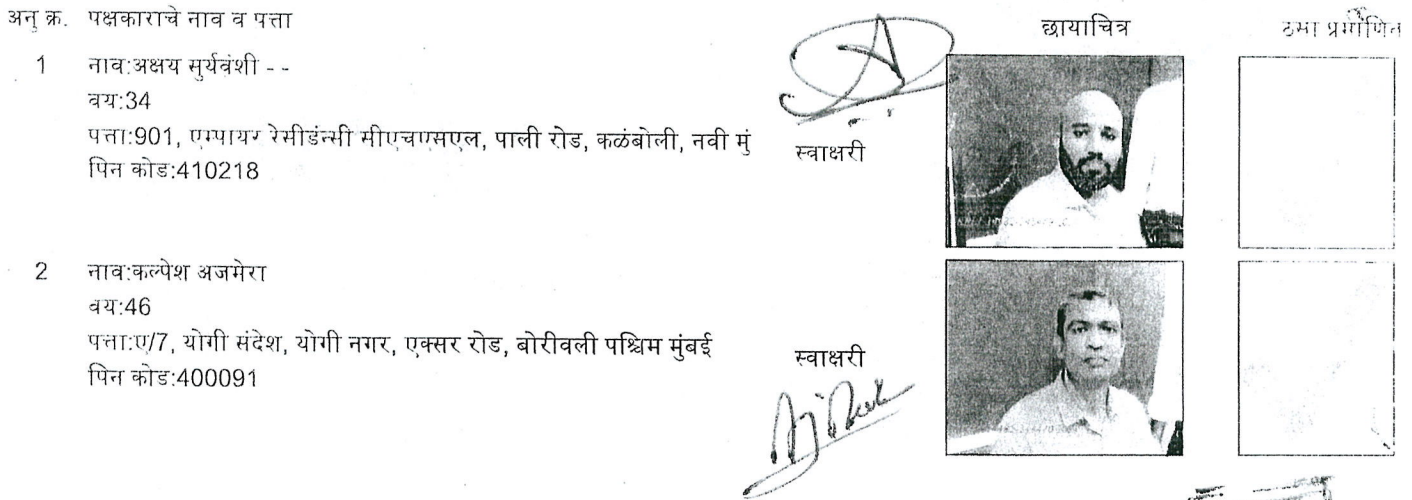 अनु क्र. पक्षकाराचे नाव व पत्ता छायाचित्र ठसा प्रमाणित
1 नाव:अक्षय सुर्यवंशी - -
वय:34
पत्ता:901, एम्पायर रेसीडंन्सी सीएचएसएल, पाली रोड, कळंबोली, नवी मुं
पिन कोड:410218
स्वाक्षरी
2 नाव:कल्पेश अजमेरा
वय:46
पत्ता:ए/7, योगी संदेश, योगी नगर, एक्सर रोड, बोरीवली पश्चिम मुंबई
पिन कोड:400091
स्वाक्षरी